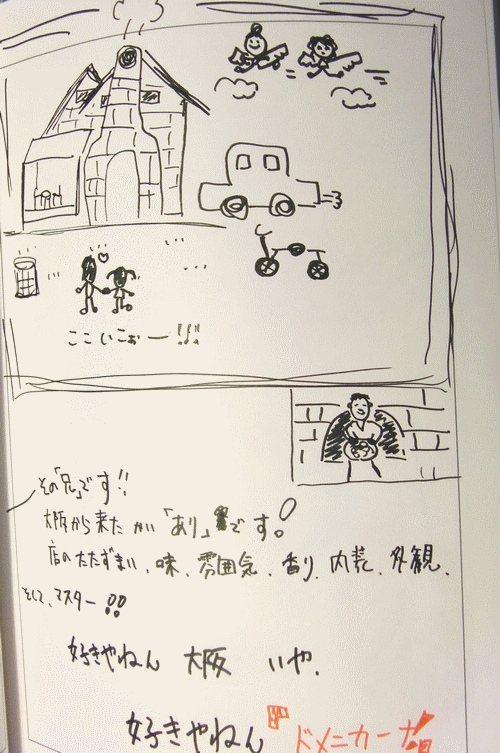 ここいこぉー!!!
その「兄」です!!
大阪から来た かい「あり」です!
店のたたずまい、味、雰囲気、香り、内装、外観、
そして、マスター!!
好きやねん 大阪 いや、
好きやねん ドメニカーナ